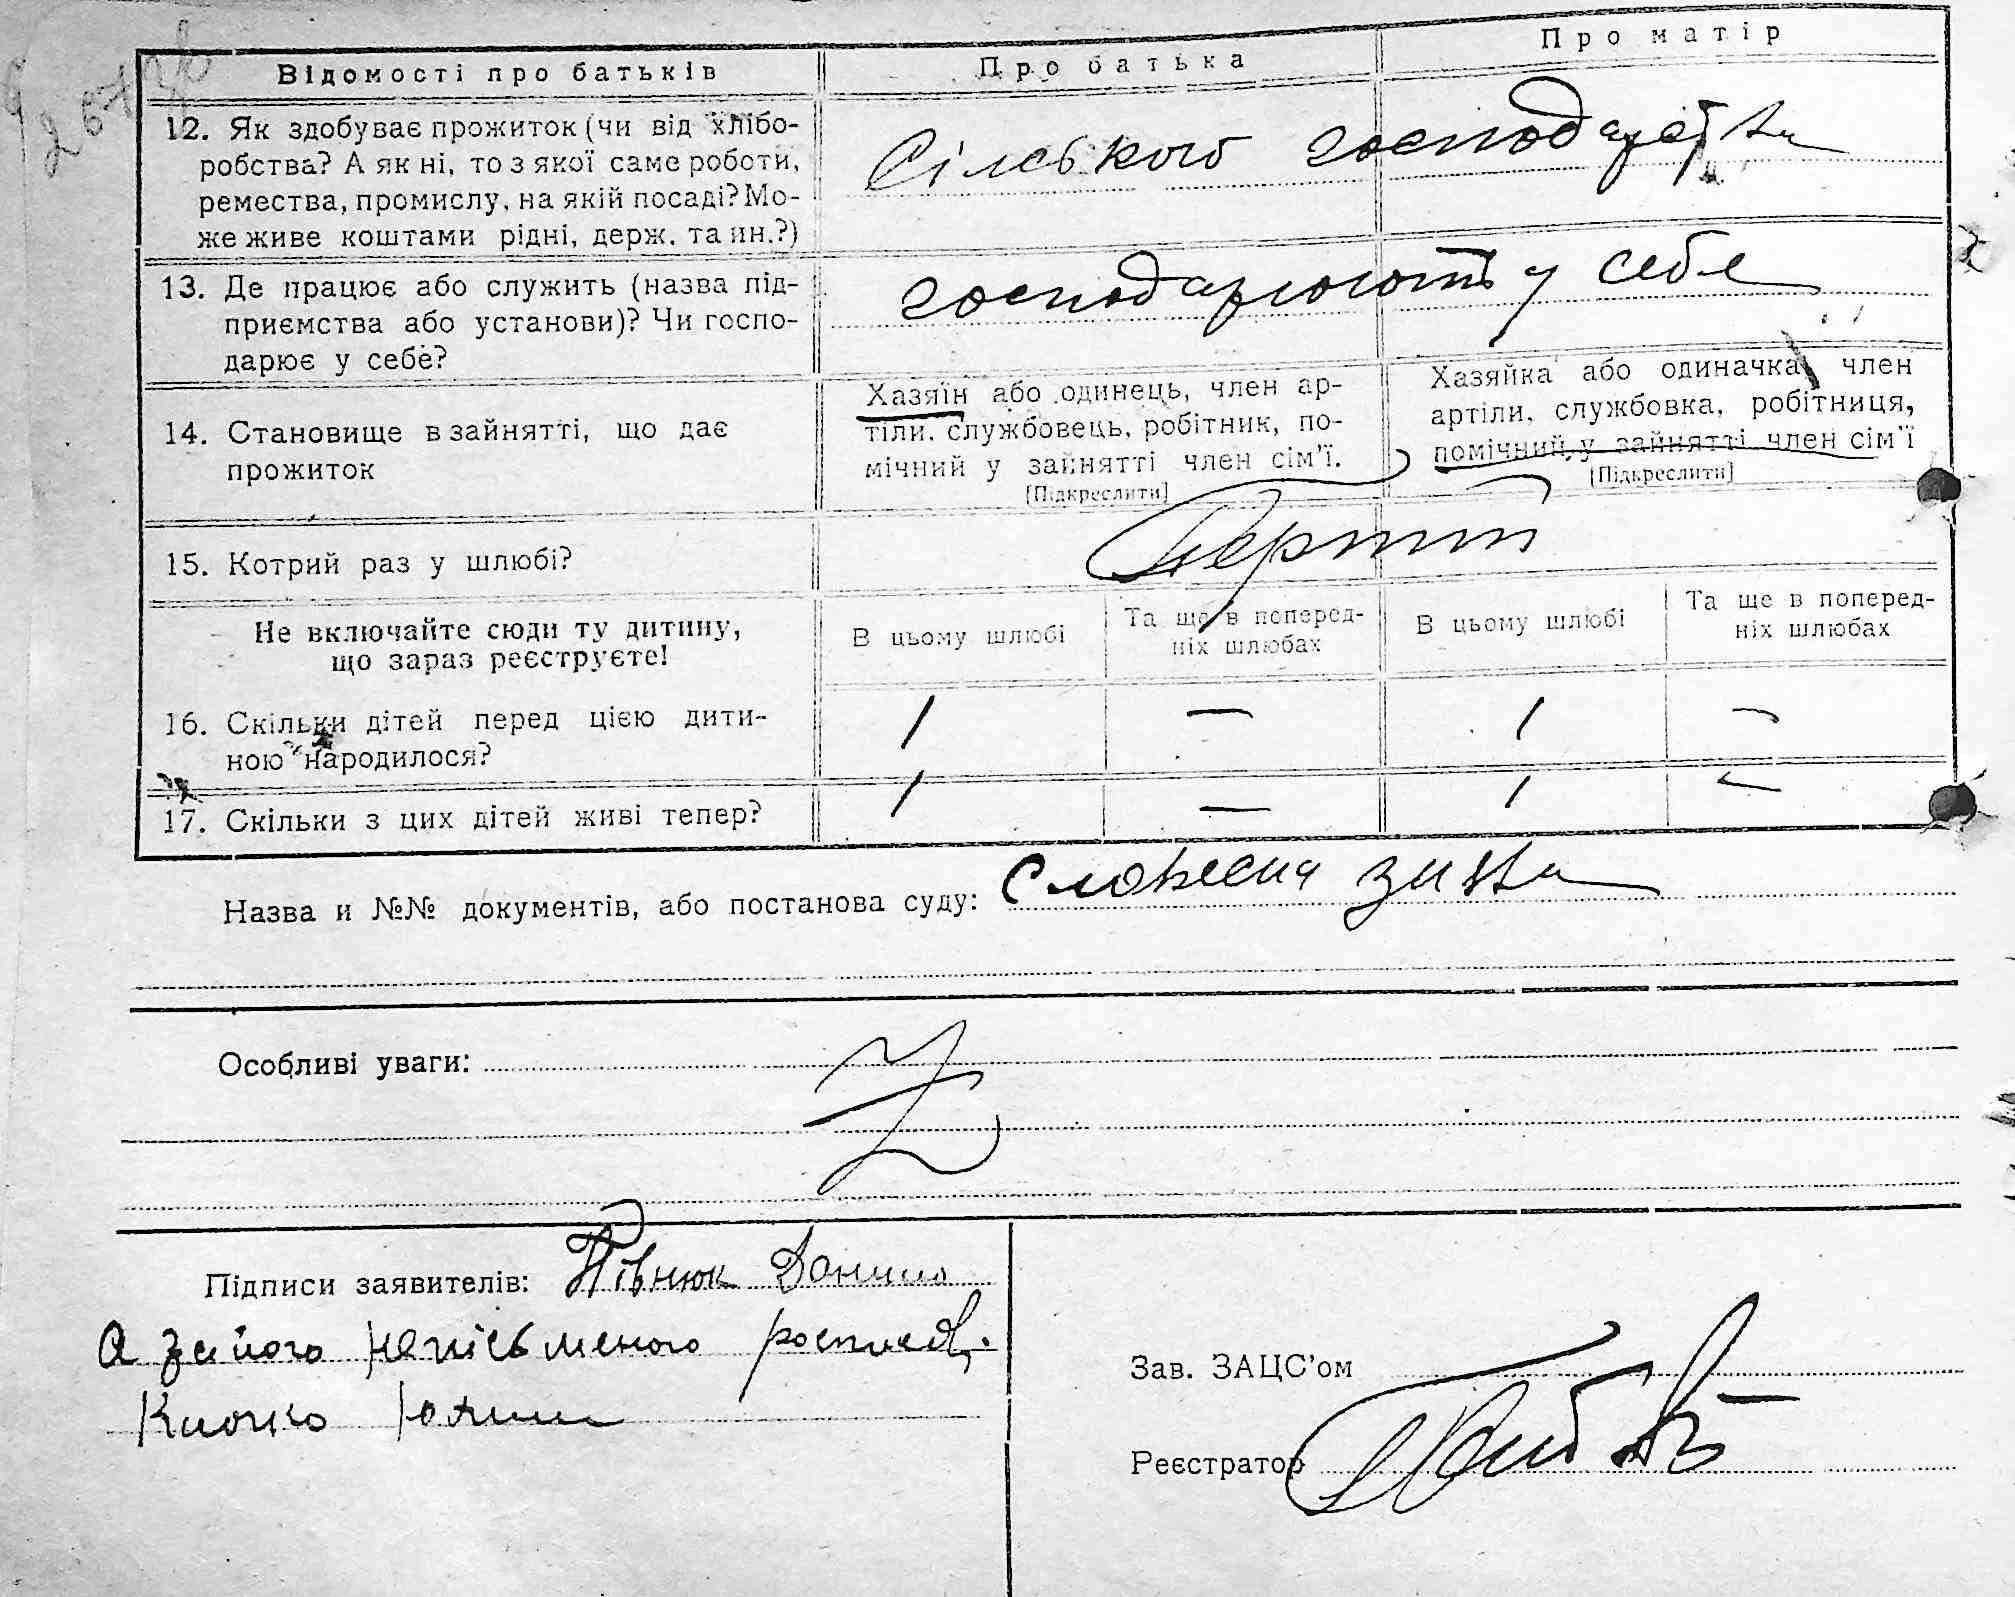 Відомості про батьків
Про батька
Про матір
12. Як здобуває прожиток (чи від хлібо-
робства? А як ні, то з якої саме роботи,
ремества, промислу, на якій посаді? Мо-
же живе коштами рідні, держ. та ин.?)
Сілського господарства
13. Де працює або служить (назва під-
приємства або установи)? Чи госпо-
дарює у себе?
господарюють у себе
14. Становище в зайнятті, що дає
прожиток
Хазяїн або одинець, член ар-
тіли, службовець, робітник, по-
мічний у зайнятті член сім'ї.
[Підкреслити]
Хазяйка або одиначка, член
артіли, службовка, робітниця,
помічний у зайнятті член сім'ї
[Підкреслити]
15. Котрий раз у шлюбі?
Не включайте сюди ту дитину,
що зараз реєструєте!
В цьому шлюбі
Та ще в поперед-
ніх шлюбах
В цьому шлюбі
Та ще в поперед-
ніх шлюбах
16. Скільки дітей перед цією дити-
ною народилося?
1 — 1 —
17. Скільки з цих дітей живі тепер?
1 — 1 —
Назва и №№ документів, або постанова суду: Словесна зиява
Особливі уваги:
Підписи заявителів: Півнюк Данило
а за його неписьменого росписався
Клочко
Зав. ЗАЦС'ом
Реєстратор